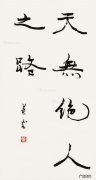 天無絕人
之路